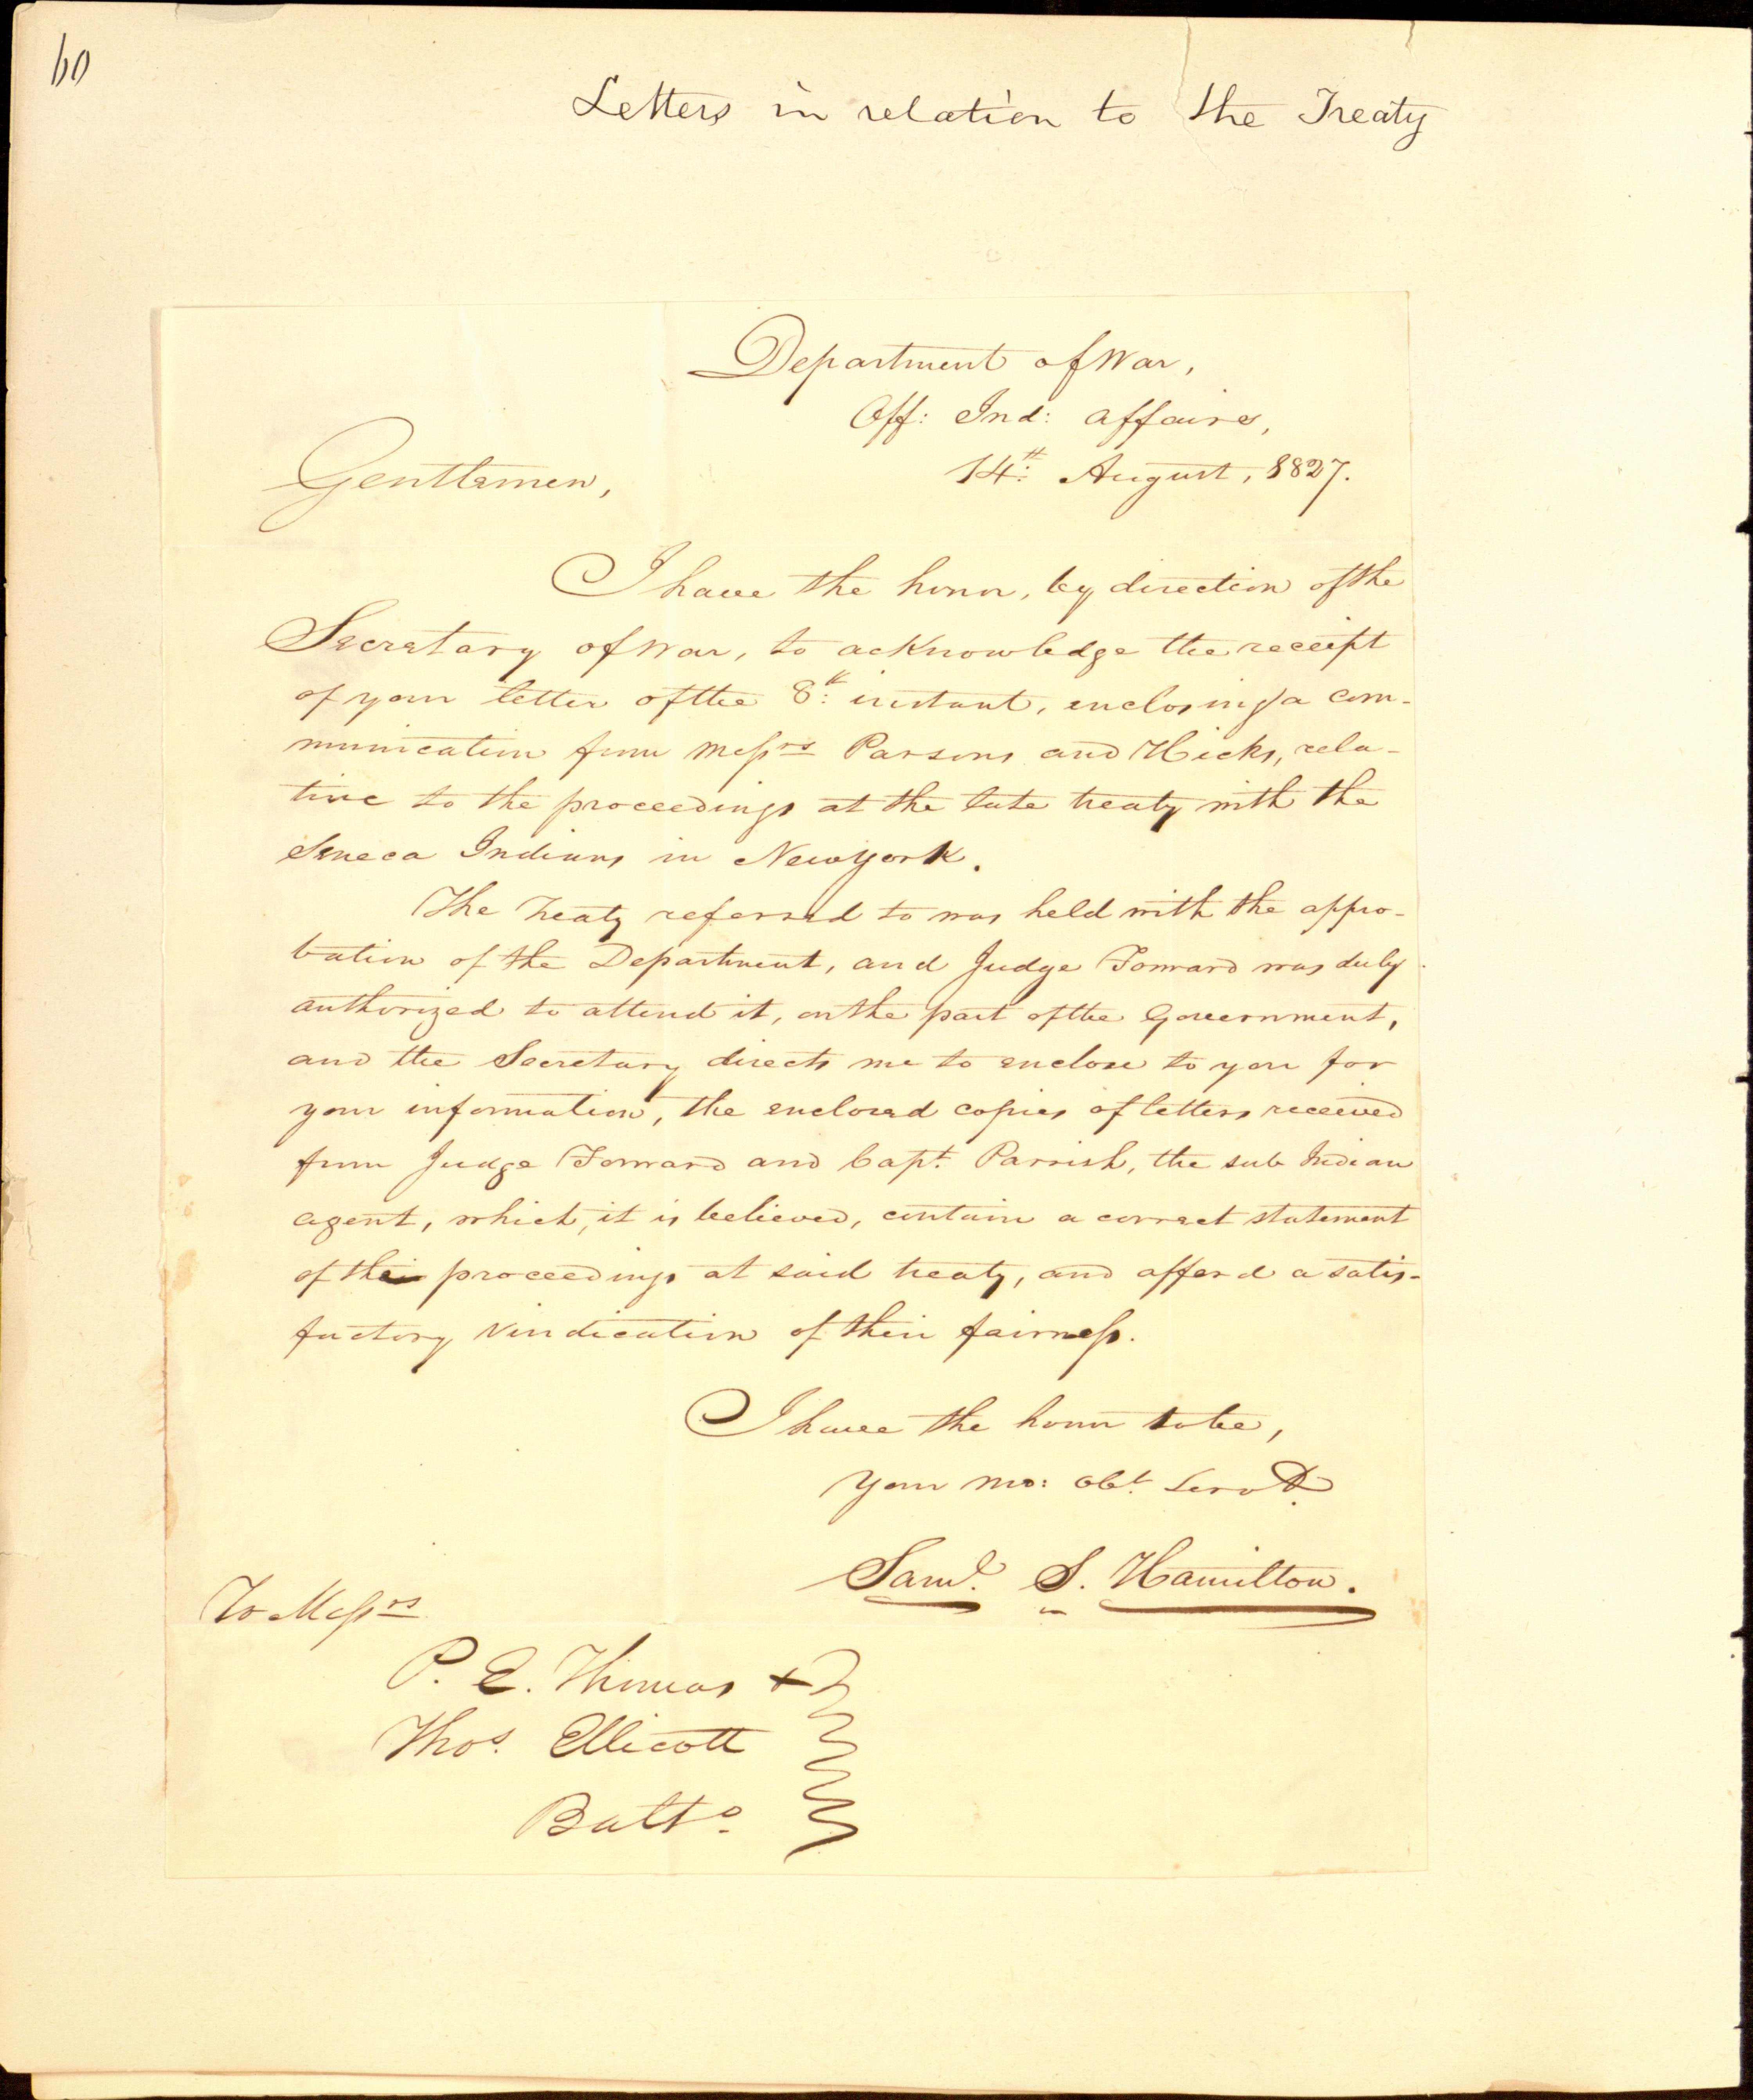 60
Letters in relation to the Treaty
Department of War,
Off: Ind: Affairs,
14th: August, 1827.
Gentlemen,
I have the honor, by direction of the
Secretary of War, to acknowledge the receipt
of your letter of the 8th: instant, enclosing a com-
munication from Messrs Parsons and Hicks, rela-
tive to the proceedings at the late treaty with the
Seneca Indians in New York.
The Treaty referred to was held with the appro-
bation of the Department, and Judge Forward was duly
authorized to attend it, on the part of the Government,
and the Secretary directs me to enclose to you for
your information, the enclosed copies of letters received
from Judge Forward and Capt. Parrish, the sub Indian
agent, which, it is believed, contain a correct statement
of the proceedings at said treaty, and afford a satis-
factory vindication of their fairness.
I have the honor to be,
Your mo: obt. Servt.
Saml. S. Hamilton.
To Messrs
P. E. Thomas +
Thos. Ellicott
Balto.